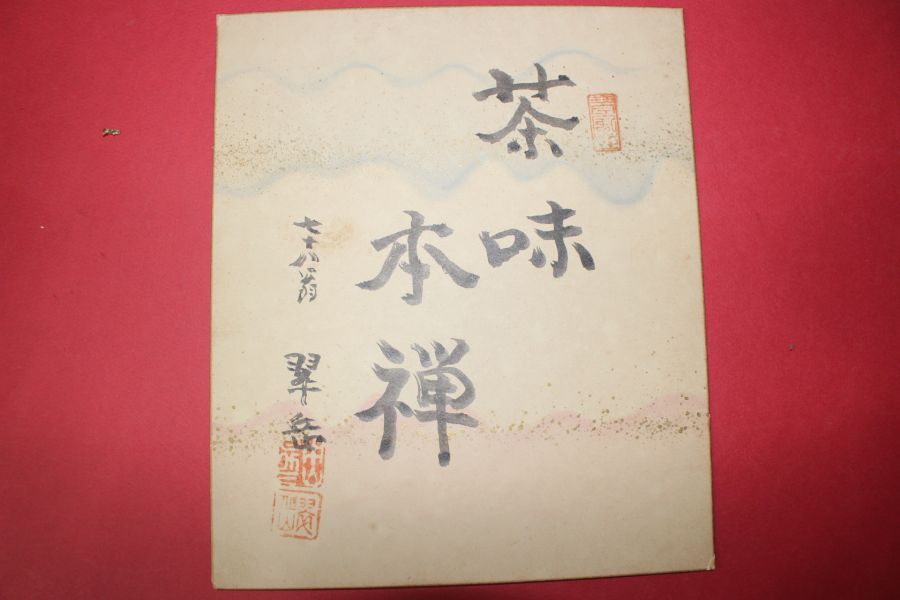 茶味
本禅
七十八翁
翠岳